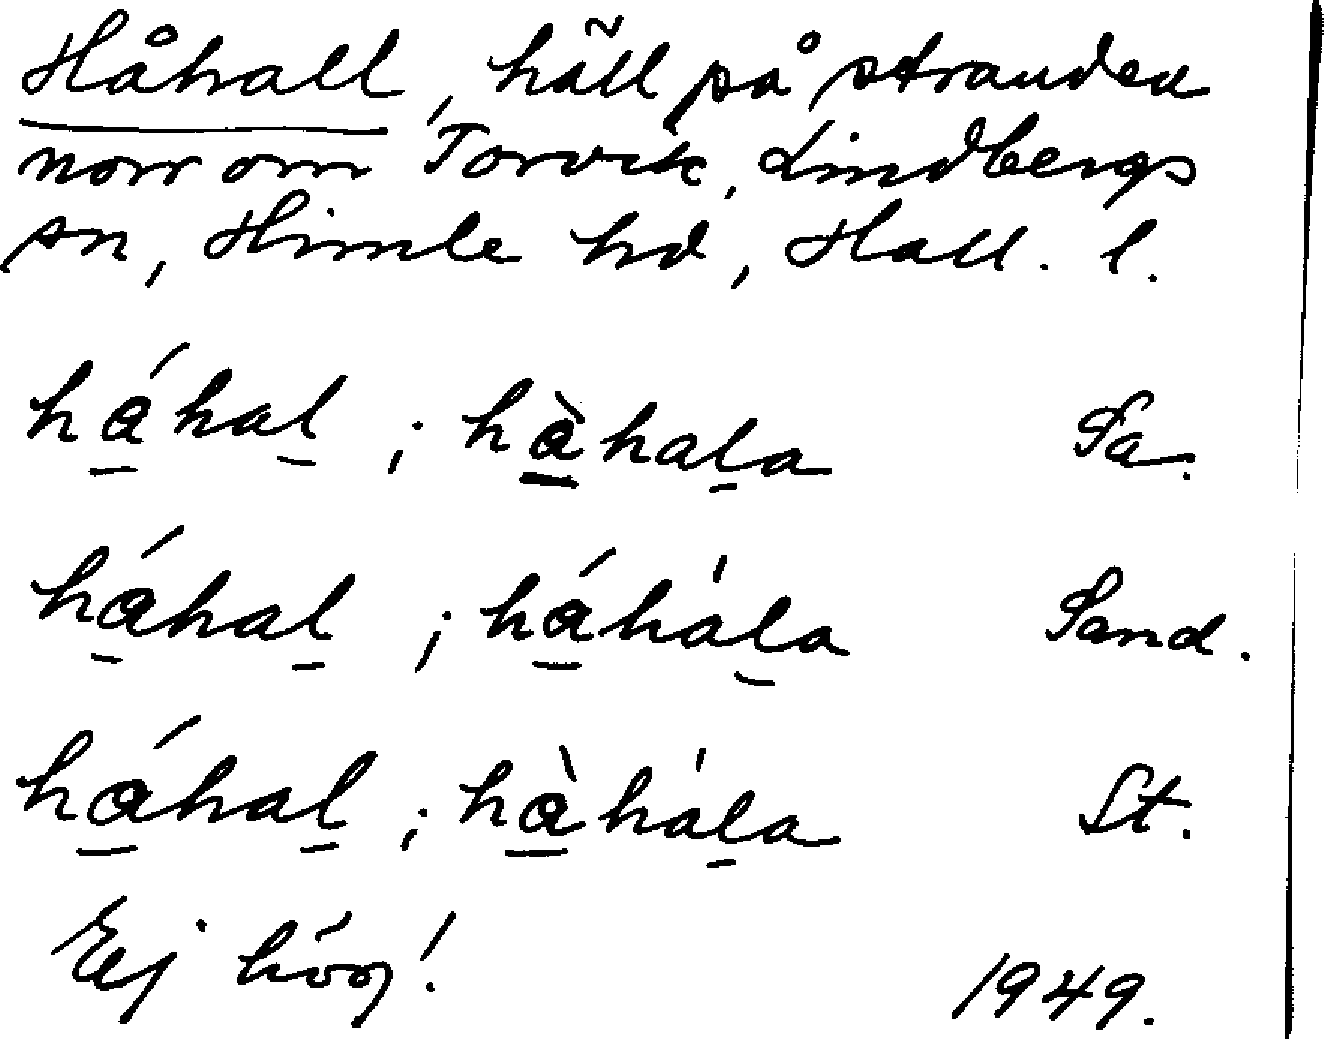 Håhall, häll på stranden
norr om Torvik, Lindbergs
sn, Himle hd, Hall. l.
há̱haḻ ; hà̱haḻa Sa.
há̱haḻ ; há̱háḻa Sand.
há̱haḻ ; hà̱háḻa St.
Ej hög!
1949.